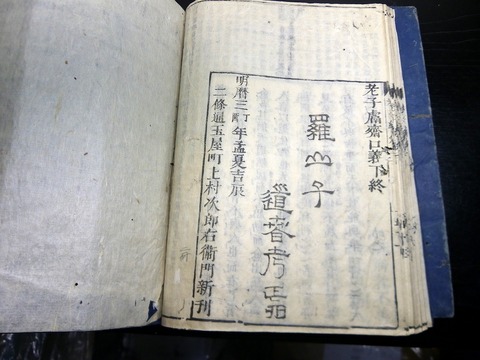 老子鬳齋口義下終
羅山子
道春考
明曆三丁酉年孟夏吉辰
二條通玉屋町上村次郎右衞門新刊